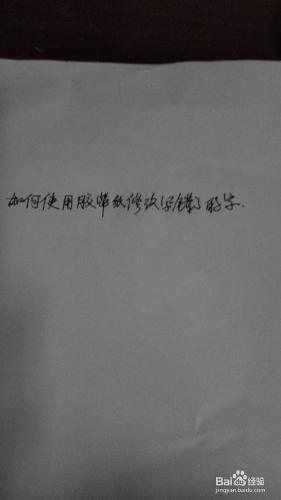 如何使用胶带纸修改写错了的字.
Baidu经验
jingyan.baidu.com